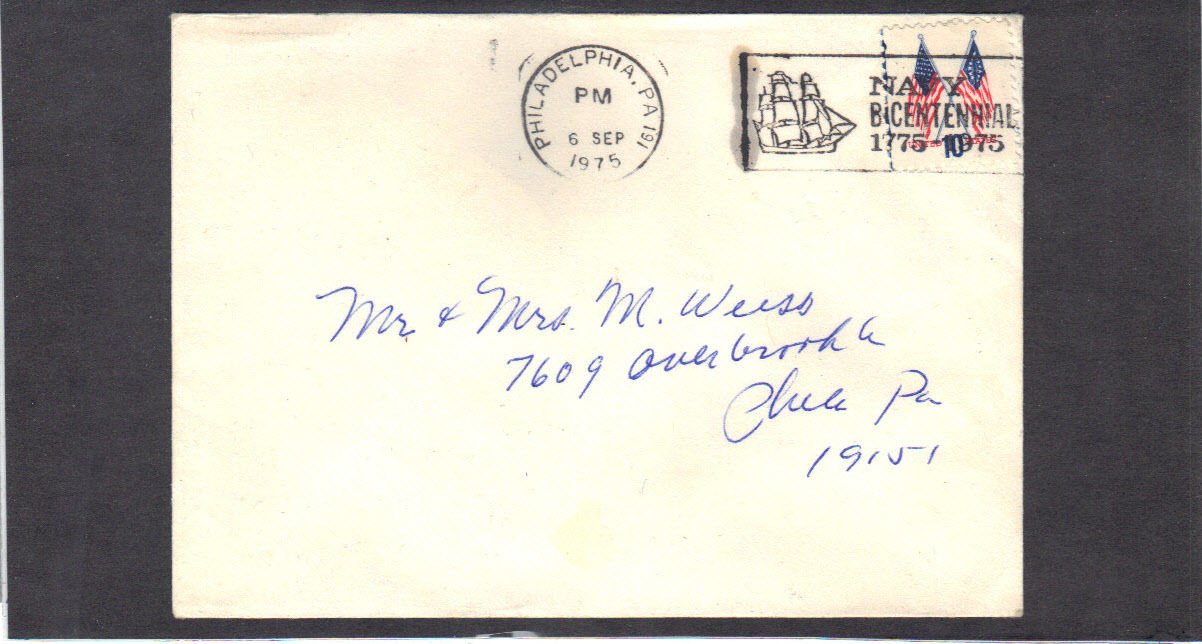 PHILADELPHIA, PA 191
PM
6 SEP
1975
NAVY
BICENTENNIAL
1775 1975
10¢
Mr & Mrs. M. Weiss
7609 Overbrook
Phila Pa
19151